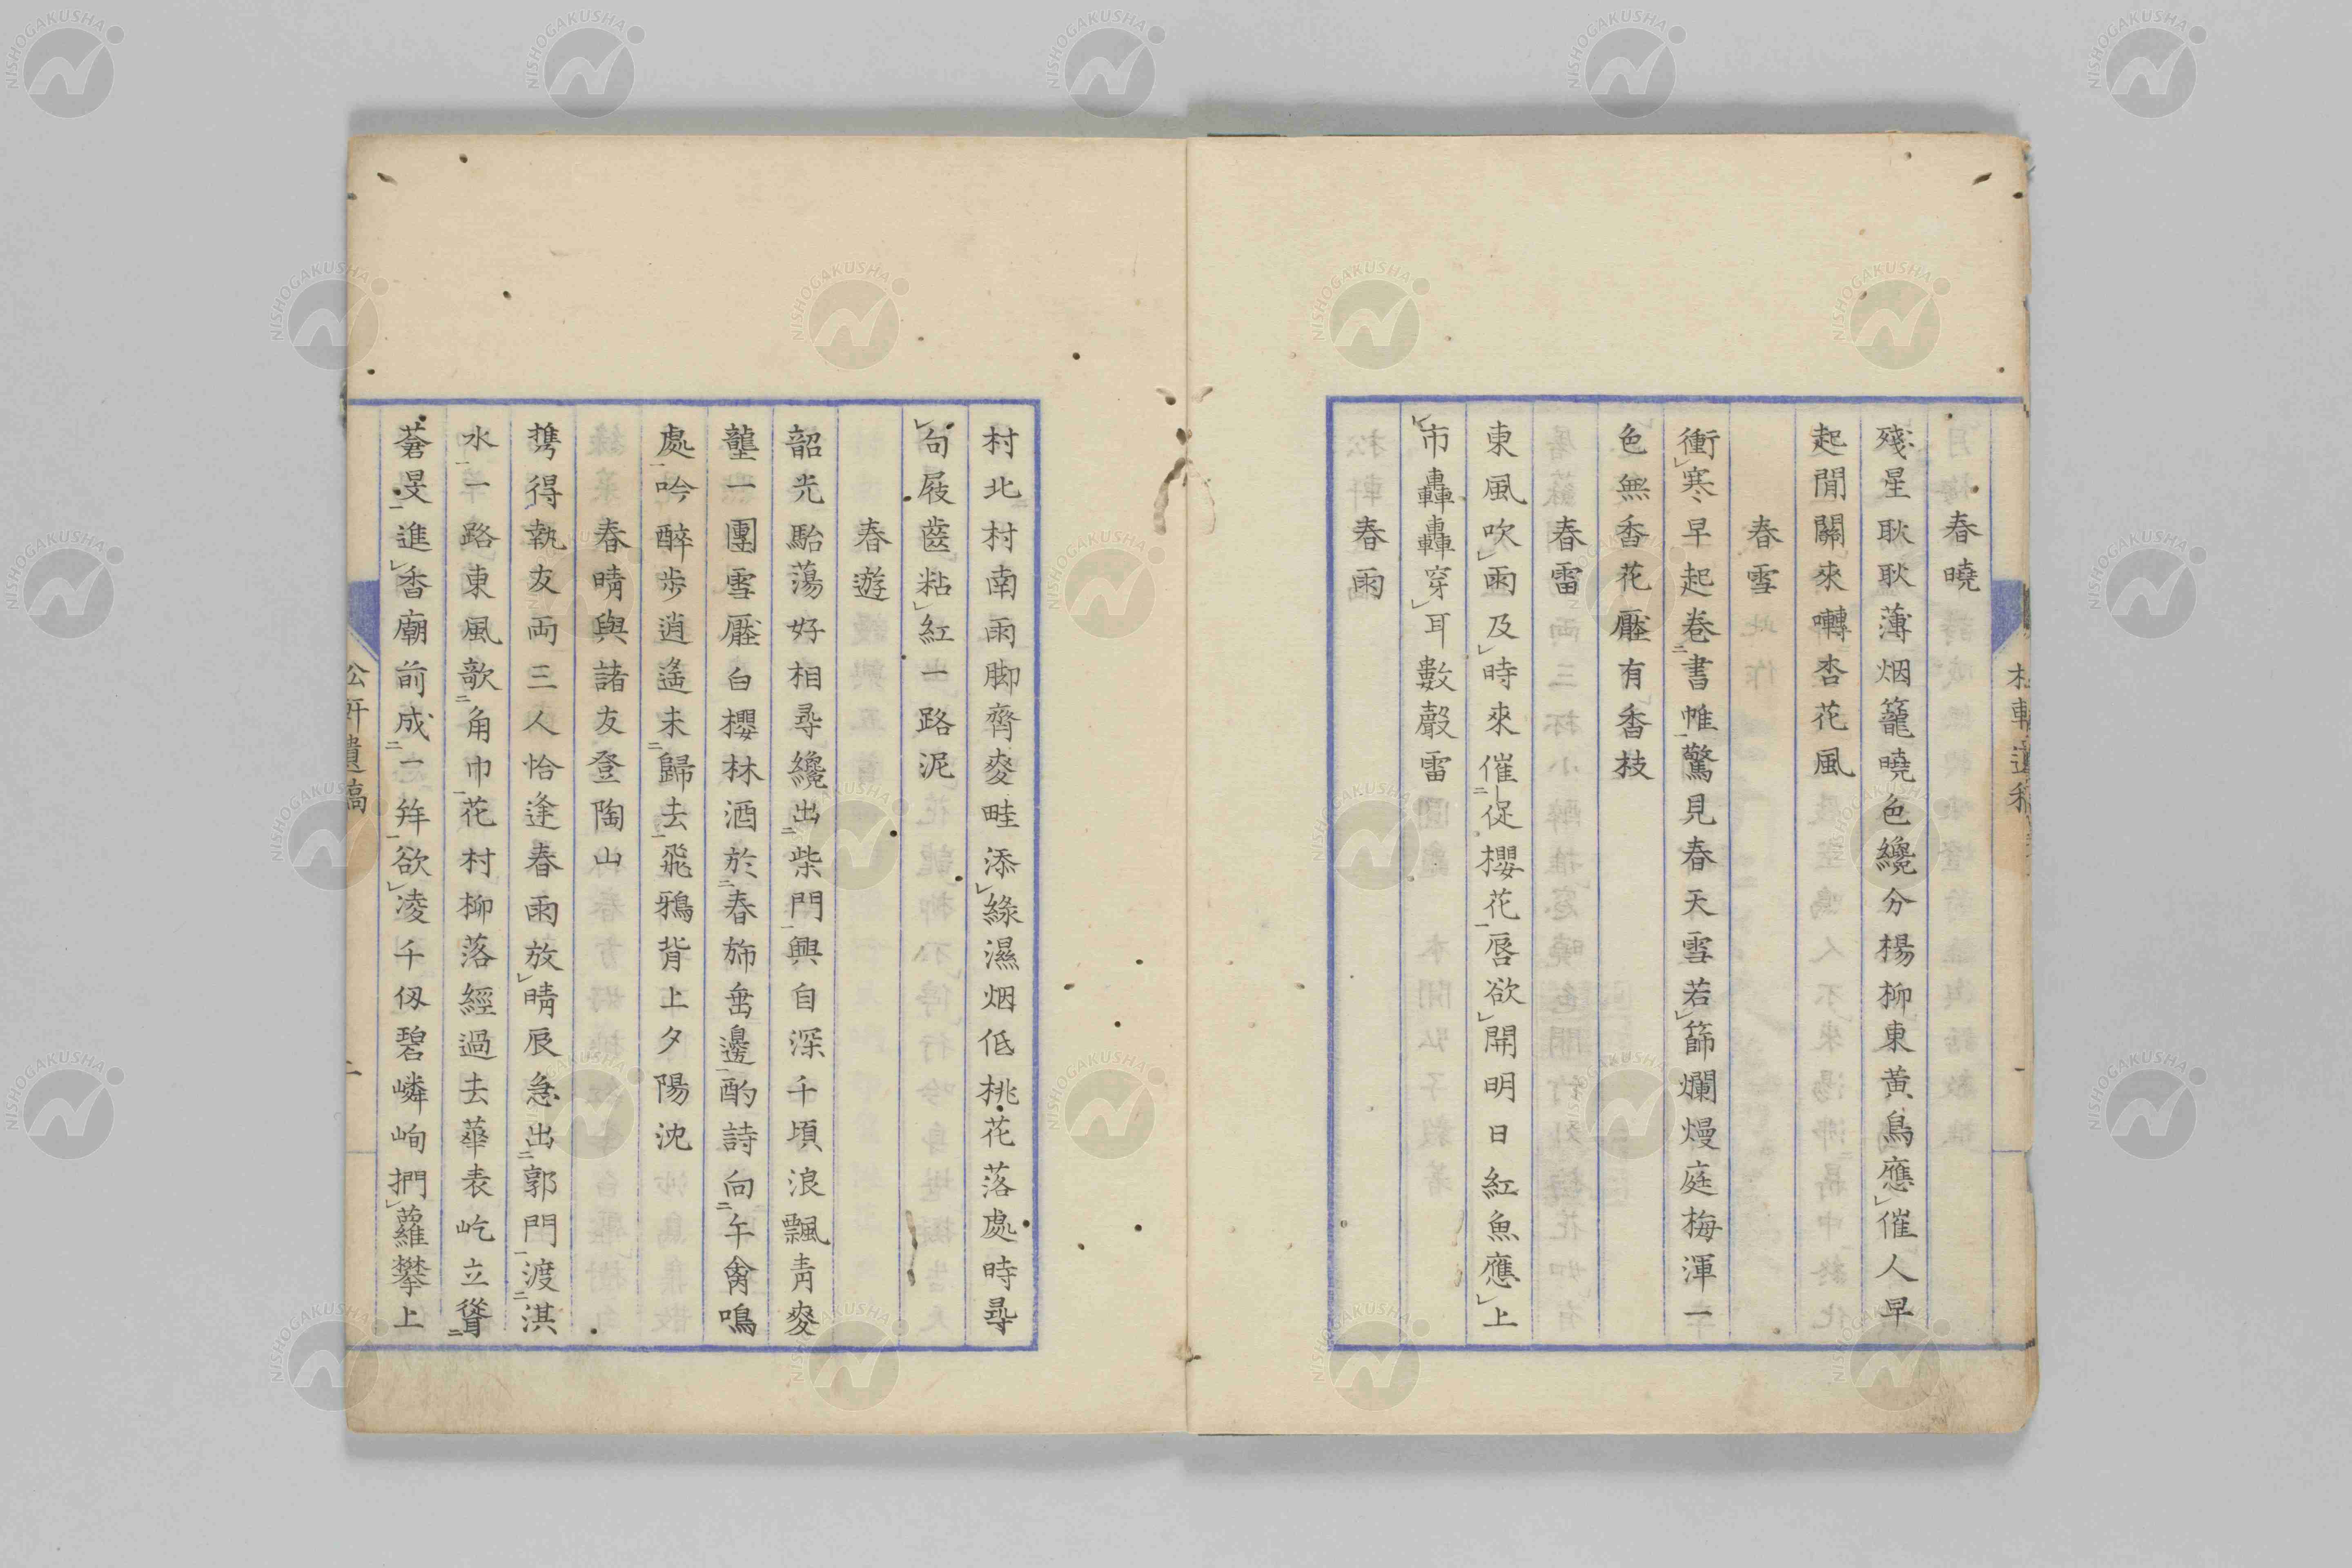 春曉
殘星耿耿薄烟籠曉色纔分楊柳東黃鳥應催人早
起閒關來囀杏花風
春雪
衝寒早起卷書帷驚見春天雪若篩爛熳庭梅渾一
色無香花壓有香枝
春雷
東風吹雨及時來催促櫻花唇欲開明日紅魚應上
市轟轟穿耳數聲雷
春雨
村北村南雨脚齊麥畦添綠濕烟低桃花落處時尋
句屐齒粘紅一路泥
春遊
韶光駘蕩好相尋纔出柴門興自深千頃浪飄青麥
壟一團雪壓白櫻林酒於春斾畨邊酌詩向午禽鳴
處吟醉步逍遙未歸去飛鴉背上夕陽沈
春晴與諸友登陶山
携得執友両三人恰逢春雨放晴辰急出郭門渡淇
水一路東風欹角巾花村柳落經過去華表屹立聳
蒼旻進香廟前成一拜欲凌千仭碧嶙峋捫蘿攀上
松軒遺稿
一
NISHOGAKUSHA